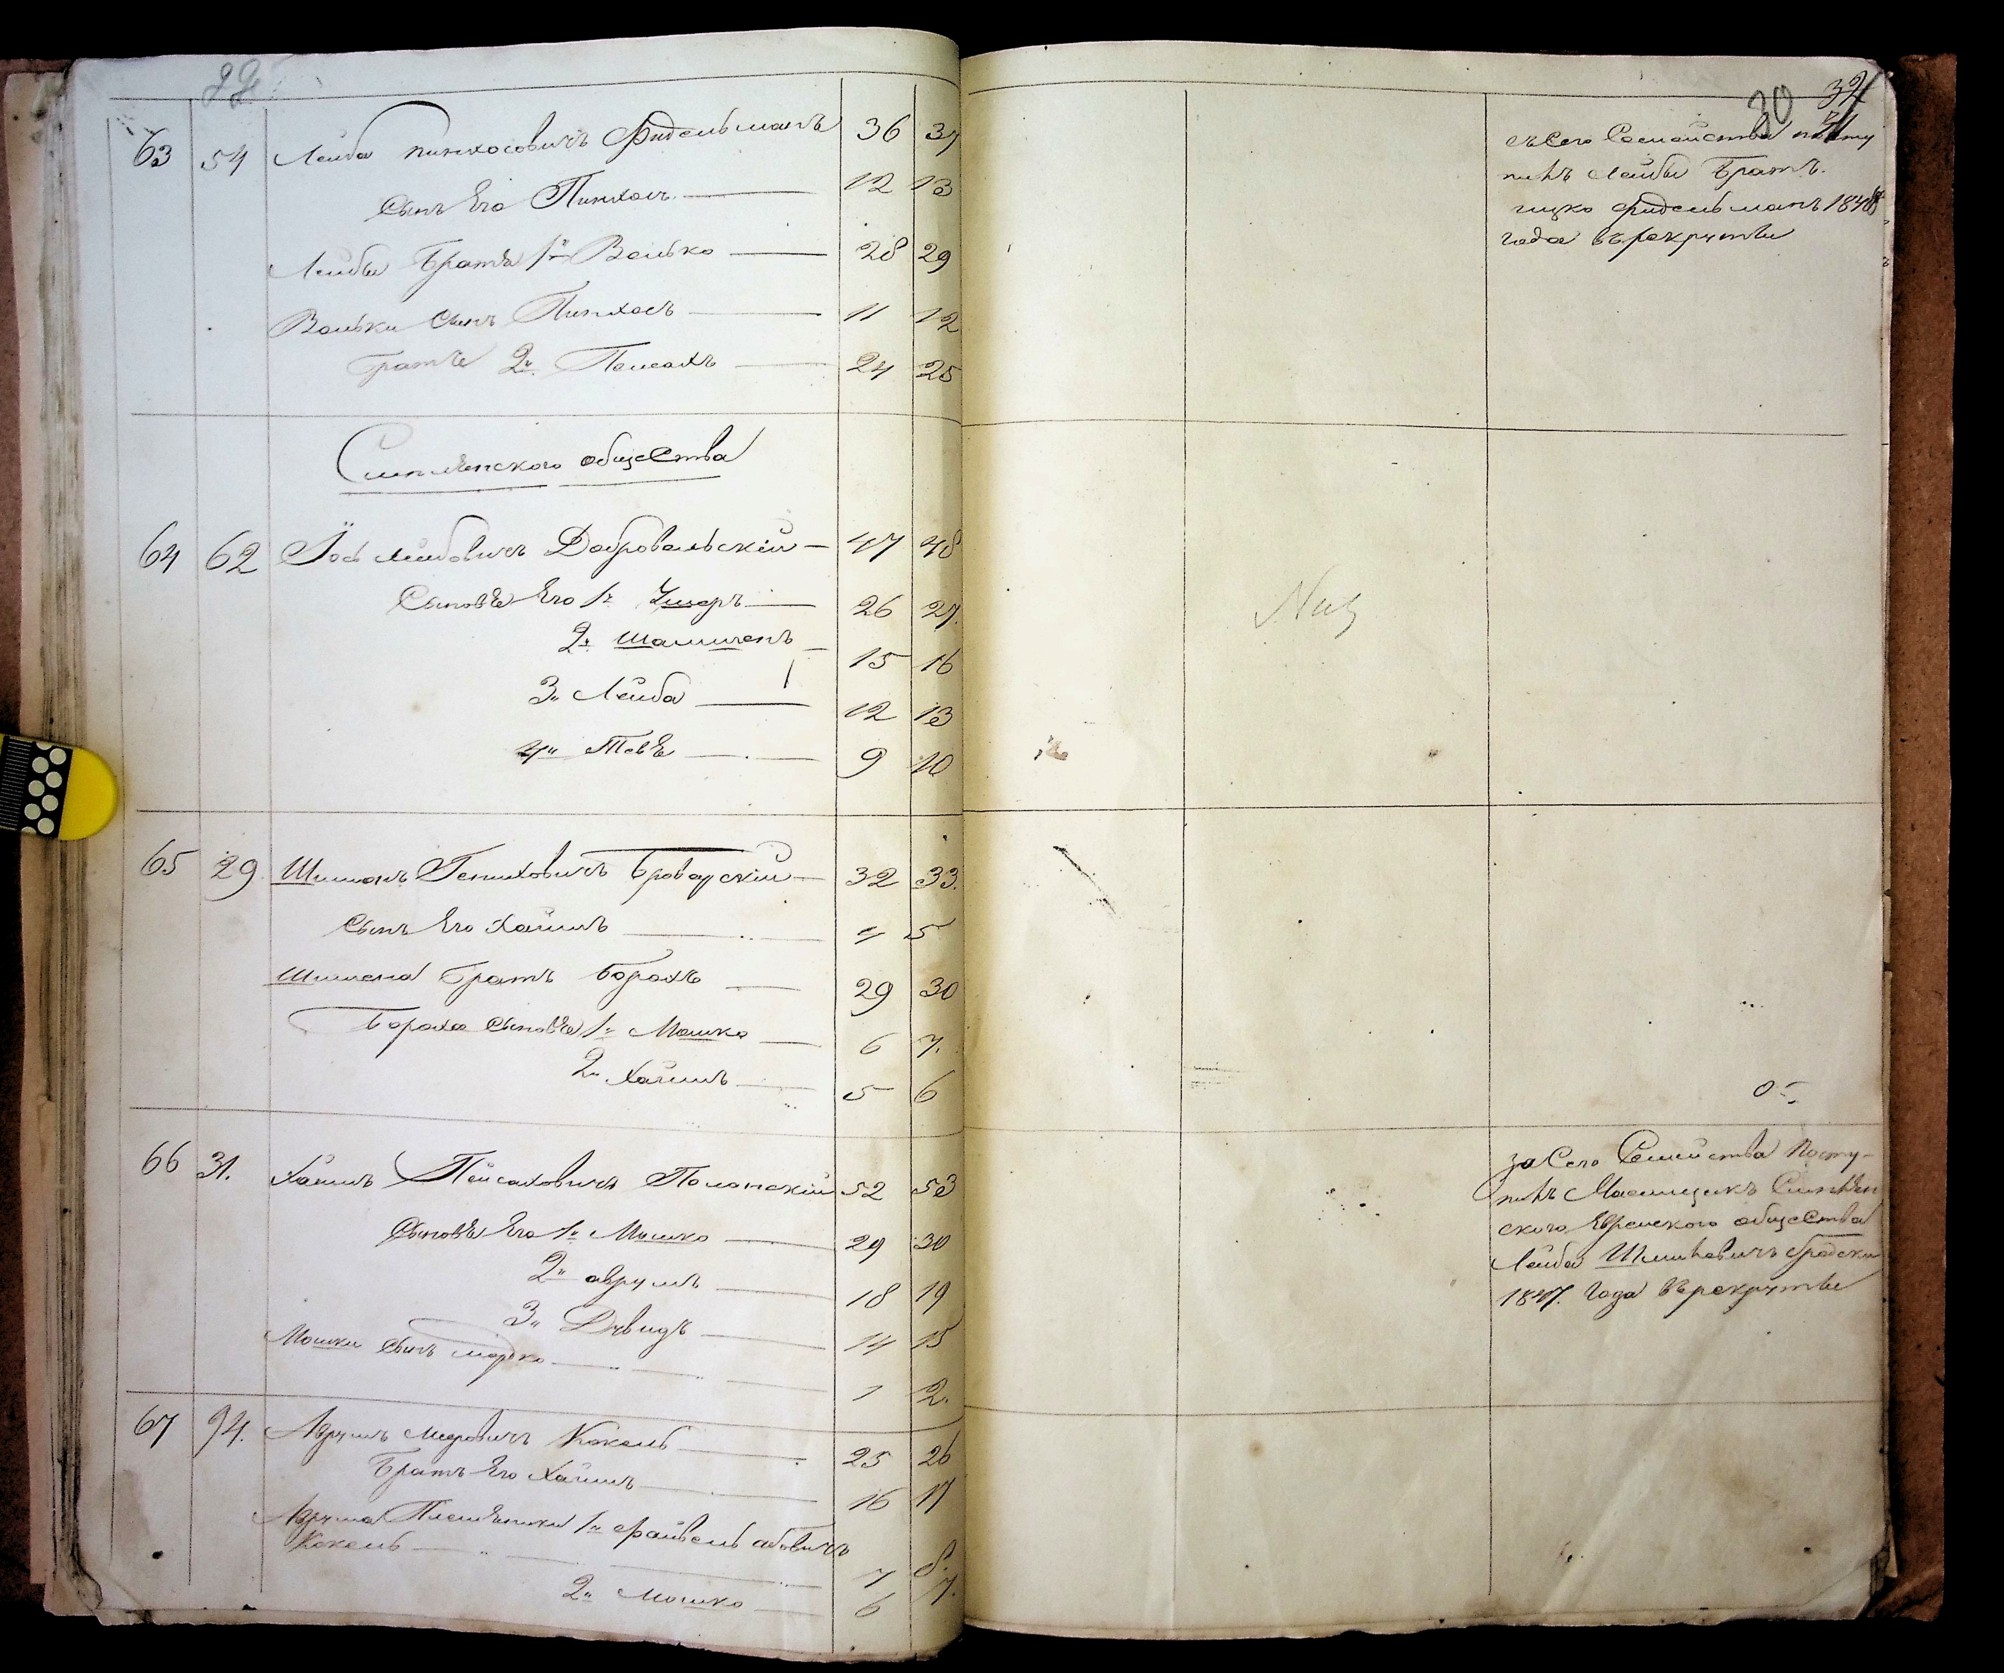 29
63 54 Лейба Пинхосовичъ Фидельманъ 36 37
Сынъ Его Пинхосъ 12 13
Лейбы Братья 1й Волько 28 29
Вольки Сынъ Пинхосъ 11 12
Братъ 2й Пейсахъ 24 25
общества
64 62 Іось Лейбовичъ Добровольскій 47 48
Сыновья Его 1й Ушеръ 26 27.
2й 15 16
3й Лейба 12 13
4й 9 10
65 29 Шлиома 32 33.
Сынъ Его Хаимъ 4 5
Братъ Борохъ 29 30
Бороха Сыновья 1й Мошко 6 7.
2й Хаимъ 5 6
66 31. Хаимъ Пейсаховичъ Полонскій 52 53
Сыновья Его 1й Мошко 29 30
2й Аврумъ 18 19
3й Дувидъ 14 15
Мошки Сынъ Мордко 1 2.
67 94. Аврумъ Мееровичъ Кокель 25 26
Братъ Его Хаимъ 16 17
Аврума Племянники 1й Файвель Абовичъ
Кокель 7 8.
2й Мошко 6 7.
30 32
съ Сего Семейства посту
пилъ Лейбы Братъ
Ицко Фидельманъ 1848
года въ рекруты
за Сего Семейства Посту-
пилъ
ского Еврейского общества
Лейба
1847. года въ рекруты